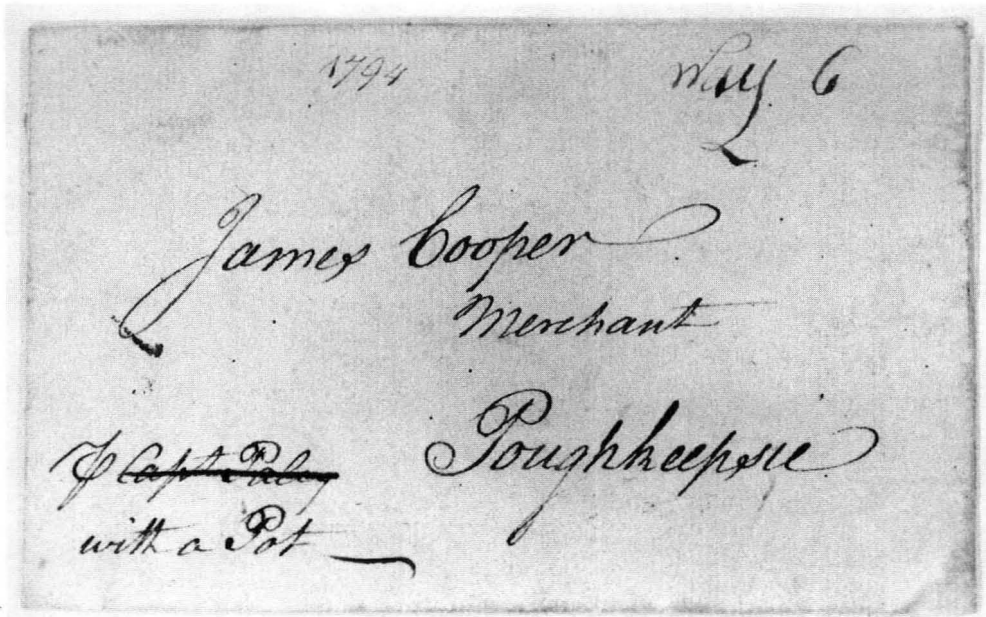 1794
Way 6
James Cooper
Merchant
Poughkeepsie
⅌ Capt
with a Pot